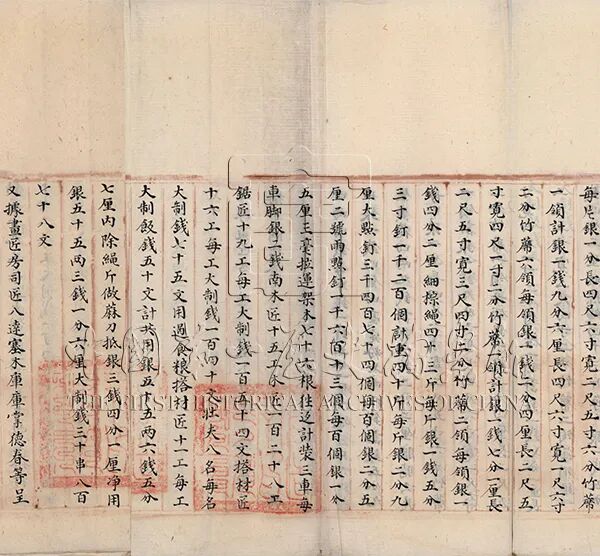 每片銀一分長二尺五寸六分竹蓆
一領計銀一錢九分六厘長四尺六寸寬一尺六寸
二分竹蓆六領每領銀二錢二分四厘長二尺五
寸寬四尺一寸二分竹蓆一領計銀二錢七分一厘長
二尺五寸寬三尺四寸二分竹蓆二領每領銀一
錢四分二厘細擦繩四十三斤每斤銀一錢五分
三寸釘一千二百個計重四十斤每斤銀二分九
厘大點釘三千四百七十四個每百個銀二分五
厘二號雨點釘一千六百十三個每百個銀一分
五厘王毫拉運架木七十六根往返計裝三車每
車腳銀二錢南木匠十五工水匠一百二十八工
鋸匠十九工每工大制錢一百五十四文搭材匠
十六工每工大制錢一百四十文壯夫八名每名
大制錢七十五文用過食粮搭材匠十一工每工
大制飯錢五十文計共用銀五十五兩六錢五分
七厘內除繩斤做麻刀抵銀三錢四分一厘淨用
銀五十五兩三錢一分六厘大制錢三十串八百
七十八文
又據畫匠房司匠八達塞木庫庫掌德春等呈
中國第一歷史檔案館
THE FIRST HISTORICAL ARCHIVES OF CHINA